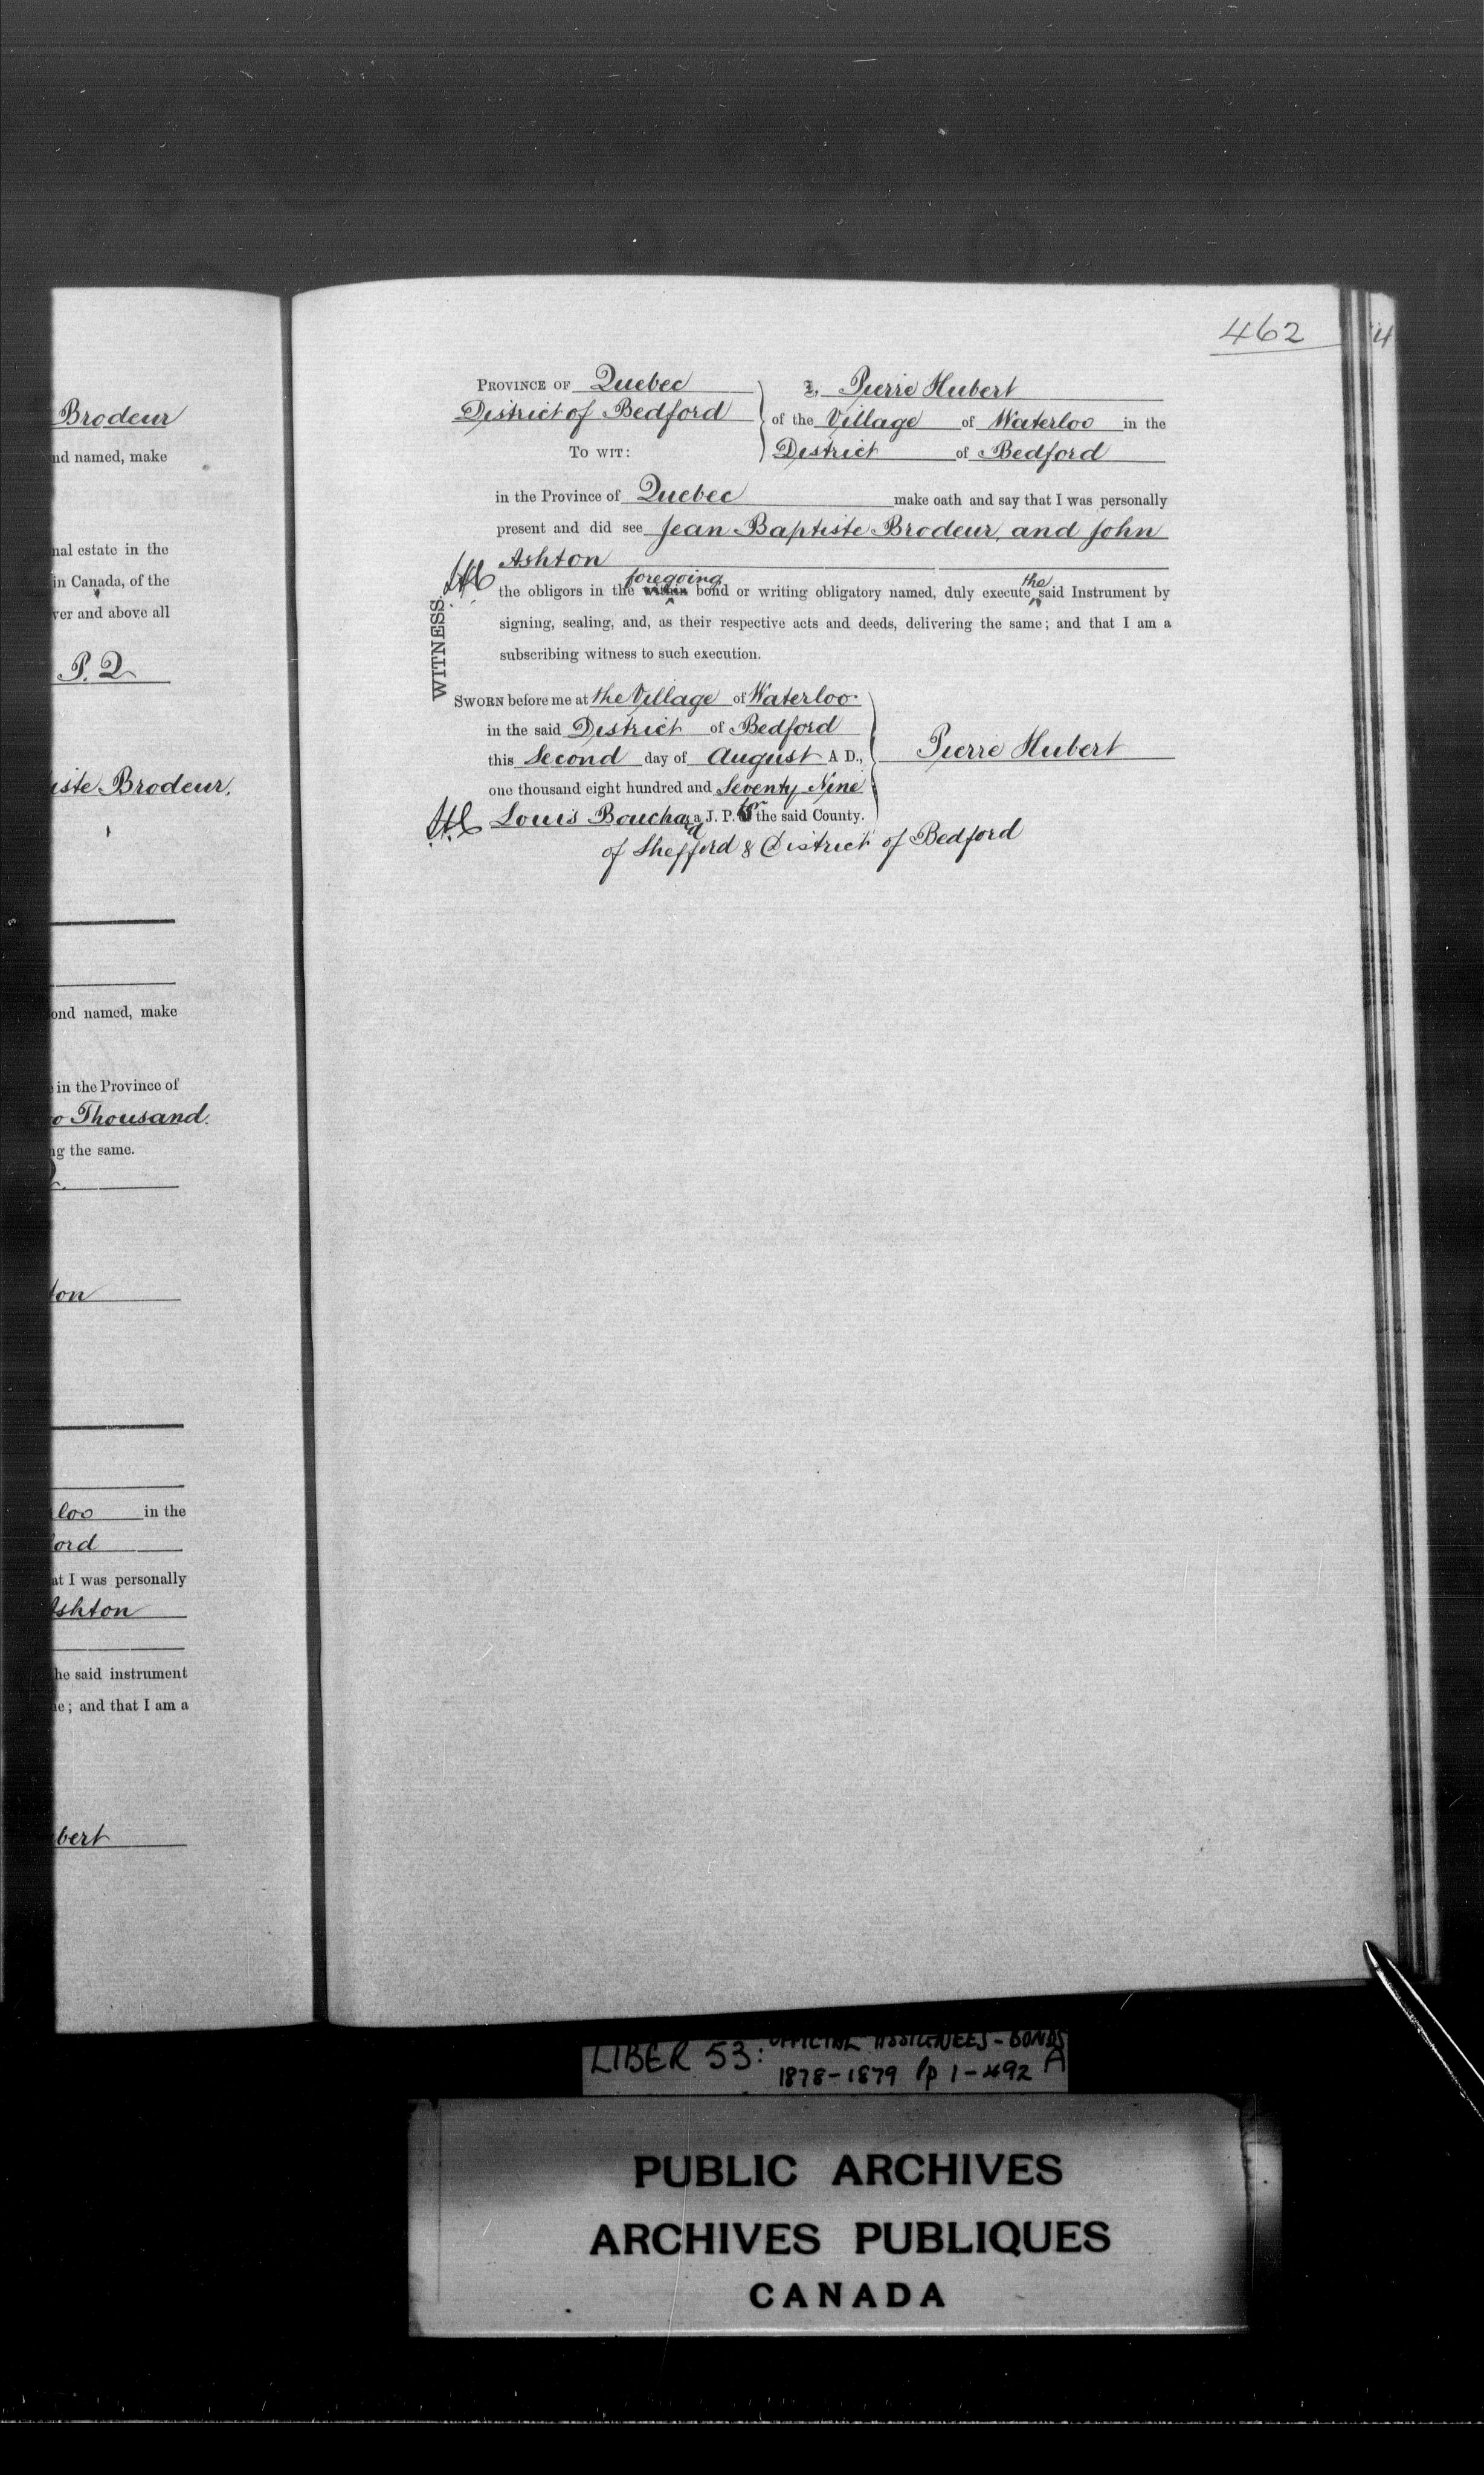 Brodeur
nd named, make
nal estate in the
in Canada, of the
ver and above all
P. Q
iste Brodeur.
ond named, make
in the Province of
o Thousand.
ng the same.
ton
loo in the
ord
at I was personally
Ashton
he said instrument
e; and that I am a
bert
462
4
PROVINCE OF Quebec
District of Bedford
TO WIT:
I, Pierre Hubert
of the Village of Waterloo in the
District of Bedford
in the Province of Quebec make oath and say that I was personally
present and did see Jean Baptiste Brodeur, and John
Ashton
foregoing the
the obligors in the within bond or writing obligatory named, duly execute said Instrument by
signing, sealing, and, as their respective acts and deeds, delivering the same; and that I am a
subscribing witness to such execution.
WITNESS.
SWORN before me at the Village of Waterloo
in the said District of Bedford
this Second day of August A D.,
one thousand eight hundred and Seventy Nine
Louis Bouchard a J. P. for the said County.
of Shefford & District of Bedford
Pierre Hubert
LIBER 53: OFFICIAL ASSIGNEES - BONDS
1878-1879 pp 1-492 A
PUBLIC ARCHIVES
ARCHIVES PUBLIQUES
CANADA